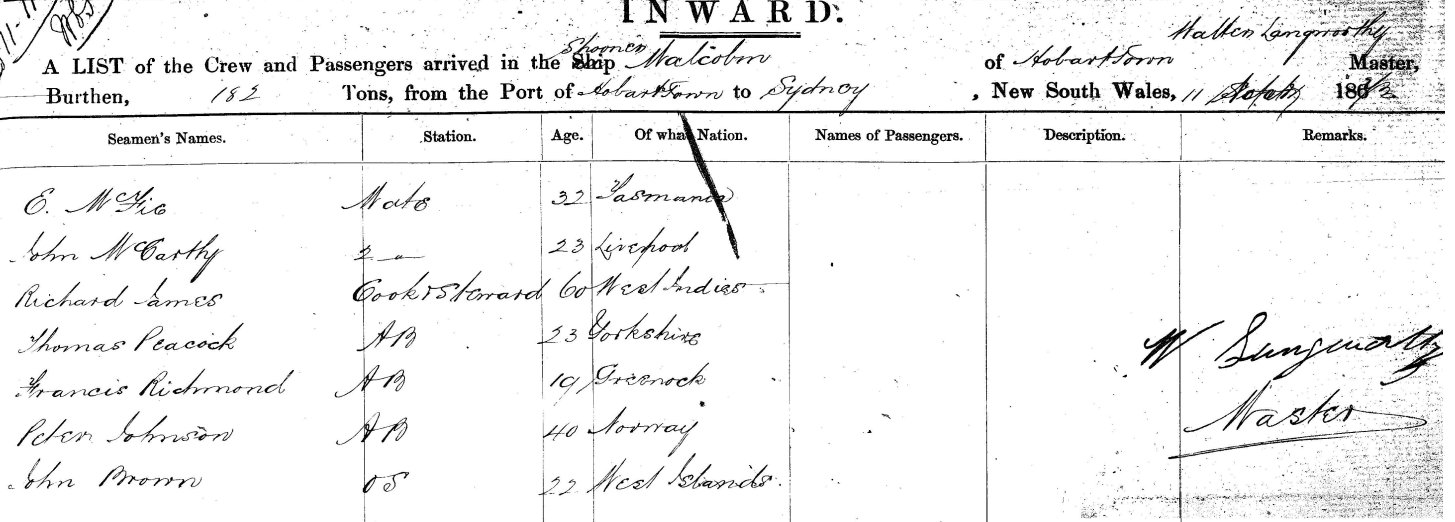 INWARD.
Walter Langworthy
Shooner
A LIST of the Crew and Passengers arrived in the Ship Malcolm of Hobart Town Master,
Burthen, 182 Tons, from the Port of Hobart Town to Sydney , New South Wales, 11 186
Seamen's Names. Station. Age. Of what Nation. Names of Passengers. Description. Remarks.
E. McFie Mate 32 Tasmania
John McCarthy 2 " 23 Liverpool
Richard James Cook & Steward 60 West Indies
Thomas Peacock AB 23 Yorkshire
Francis Richmond AB 19 Greenock
W Langworthy
Peter Johnson AB 40 Norway
Master
John Brown OS 22 West Islands